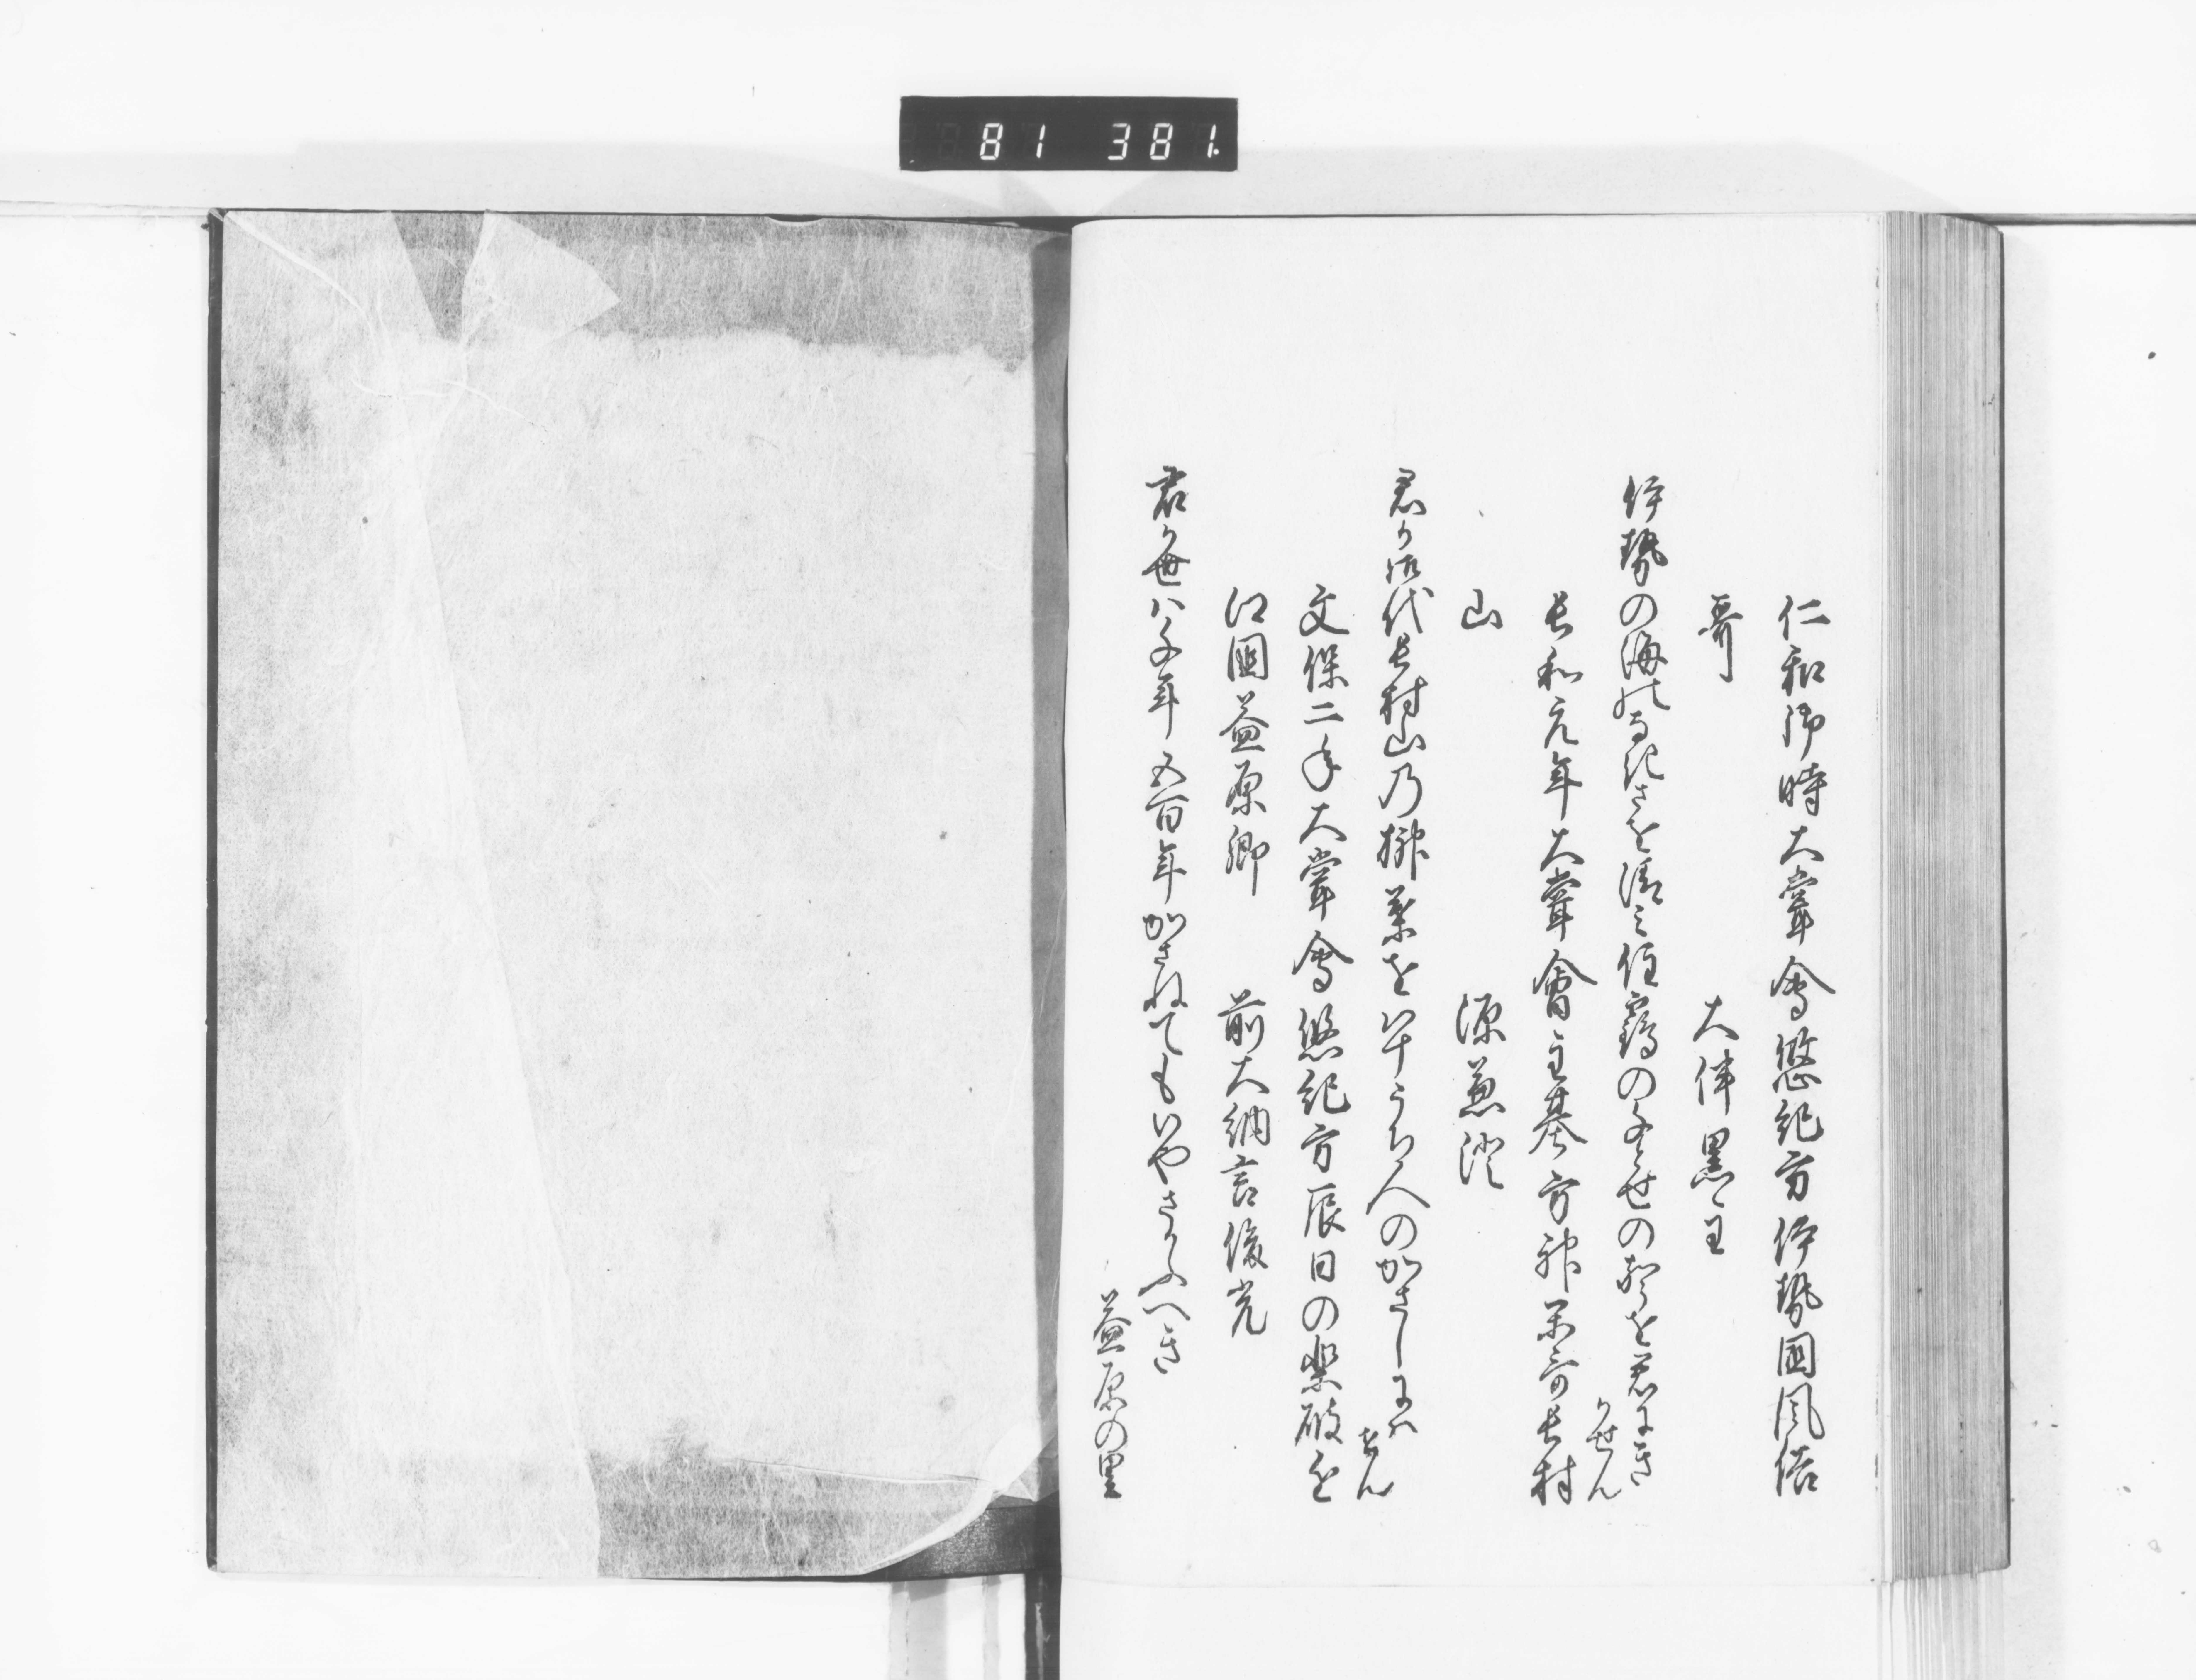 81 381.
仁和御時大嘗會悠紀方伊勢國風俗
哥　大伴黒主
伊勢の海のなきさを清み住鶴の千とせの声を君にき
かせん
長和元年大嘗會主基方神楽哥長村
山　源兼澄
君か御代長村山乃榊葉をやそうち人のかさしにハ
せん
文保二年大嘗會悠紀方辰日の楽破を
江国益原郷　前大納言俊光
君か世ハ千年五百年かさねてもいやさかふへき
益原の里